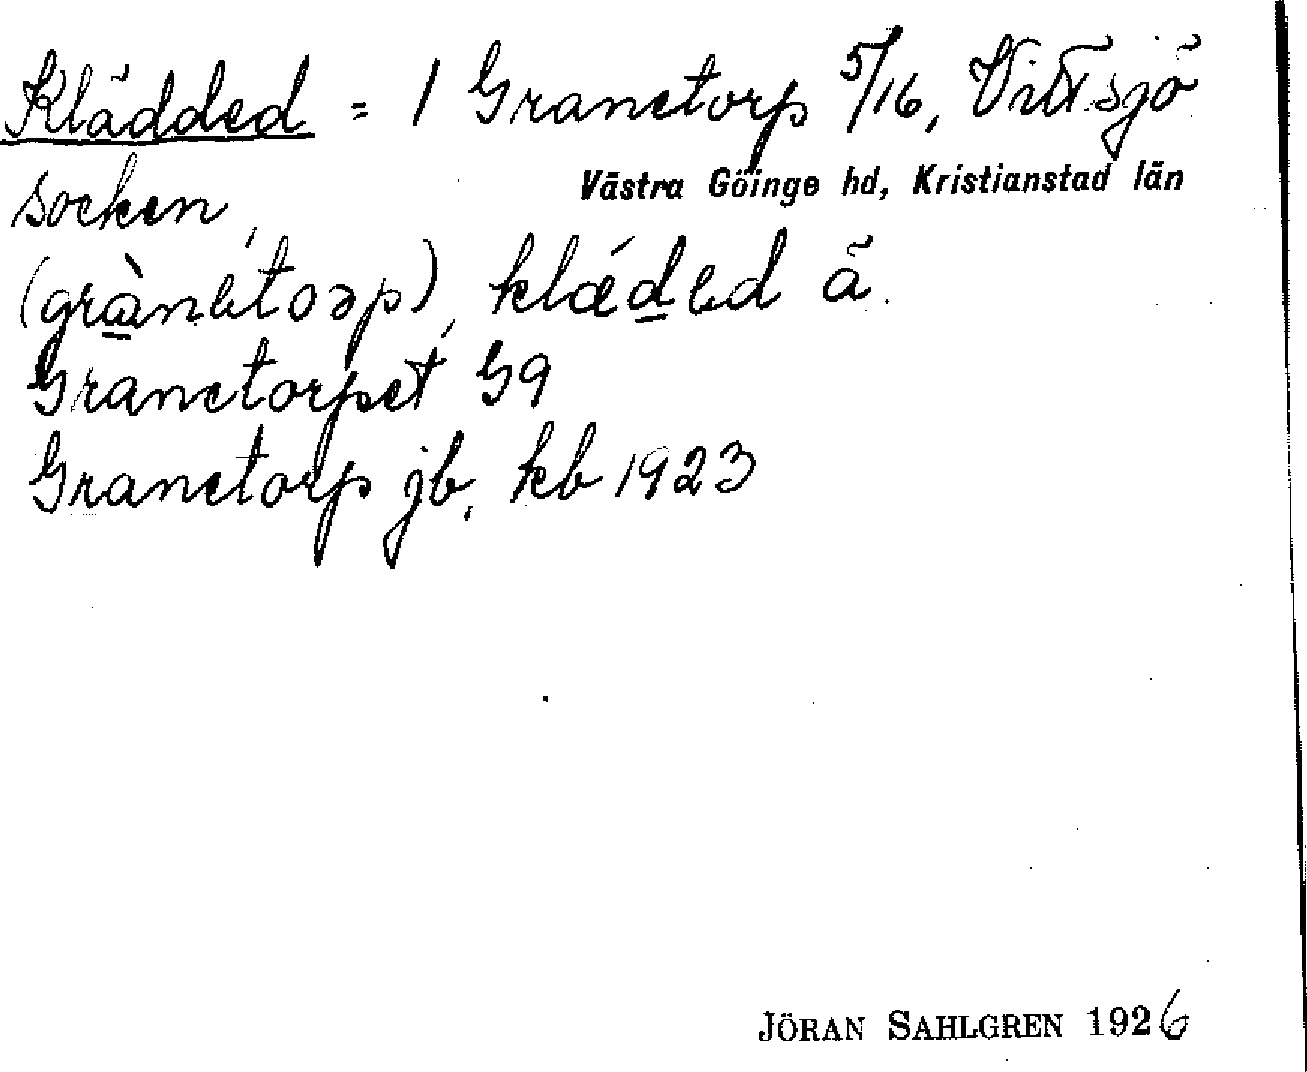 Klädded = 1 Granetorp 5/16, Vittsjö
socken,
Västra Göinge hd, Kristianstad län
(grànɛtoəp), klǽdɛd ä.
Granetorpet G9
Granetorp jb, kb 1923
JÖRAN SAHLGREN 1926